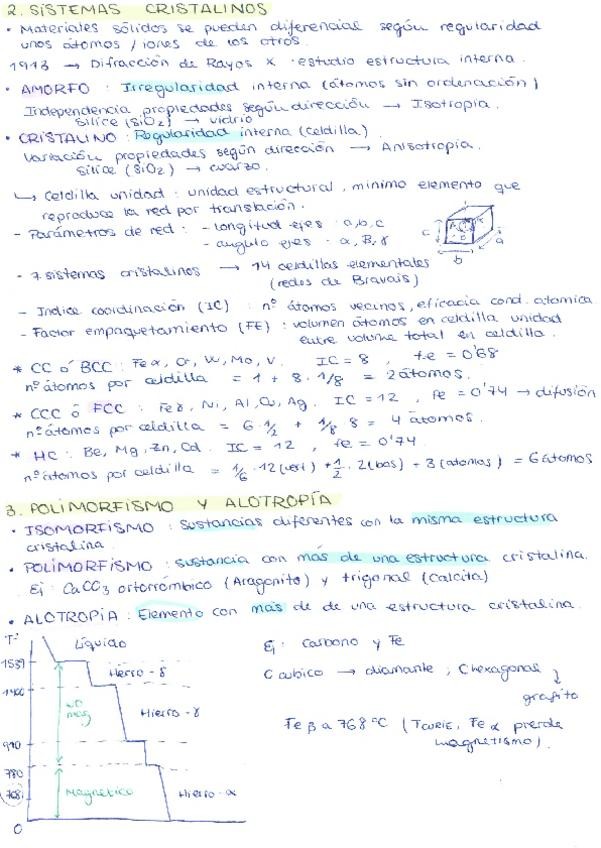 2. SISTEMAS CRISTALINOS
• Materiales sólidos se pueden diferenciar según regularidad
unos átomos / iones de los otros.
1913 → Difracción de Rayos X · estudio estructura interna.
• AMORFO : Irregularidad interna (átomos sin ordenación)
Independencia propiedades según dirección → Isotropía.
sílice (SiO2) → vidrio
• CRISTALINO : Regularidad interna (celdilla)
Variación propiedades según dirección → Anisotropía.
sílice (SiO2) → cuarzo.
↳ Celdilla unidad : unidad estructural, mínimo elemento que
reproduce la red por translación.
- Parámetros de red : - longitud ejes : a, b, c
- ángulo ejes : α, β, γ
c
b
a
- 7 sistemas cristalinos → 14 celdillas elementales
(redes de Bravais)
- Indice coordinación (IC) : nº átomos vecinos, eficacia cond. atomica
- Factor empaquetamiento (FE) : volumen átomos en celdilla unidad
entre volume total en celdilla.
* CC ó BCC : Feα, Cr, W, Mo, V. IC = 8, f.e = 0'68
nº átomos por celdilla = 1 + 8 · 1/8 = 2 átomos.
* CCC ó FCC : Feγ, Ni, Al, Cu, Ag. IC = 12, fe = 0'74 → difusión
nº átomos por celdilla = 6 · 1/2 + 1/8 · 8 = 4 átomos.
* HC : Be, Mg, Zn, Cd. IC = 12, fe = 0'74.
nº átomos por celdilla = 1/6 · 12 (vert) + 1/2 · 2 (bas) + 3 (atomos) = 6 átomos
3. POLIMORFISMO Y ALOTROPÍA
• ISOMORFISMO : sustancias diferentes con la misma estructura
cristalina.
• POLIMORFISMO : sustancia con más de una estructura cristalina.
Ej : CaCC3 ortorrómbico (Aragonito) y trigonal (Calcita)
• ALOTROPÍA : Elemento con más de de una estructura cristalina.
Tª
Líquido
1539
Hierro - δ
1400
no mag
Hierro - γ
910
780
768
Magnético
Hierro - α
0
Ej : Carbono y Fe
C cubico → diamante ; C hexagonal
grafito
Fe β a 768 °C (TCURIE, Fe α pierde
magnetismo).